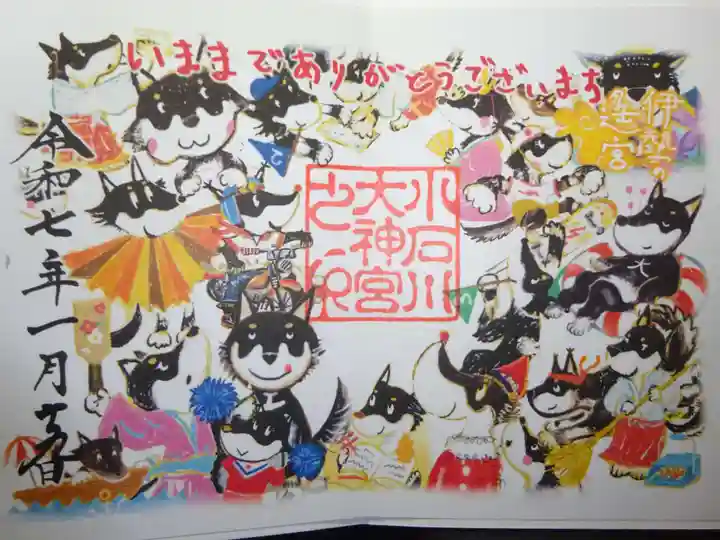 いままでありがとうございます
伊勢の
遷宮
小石川
大神宮
令和七年一月吉日